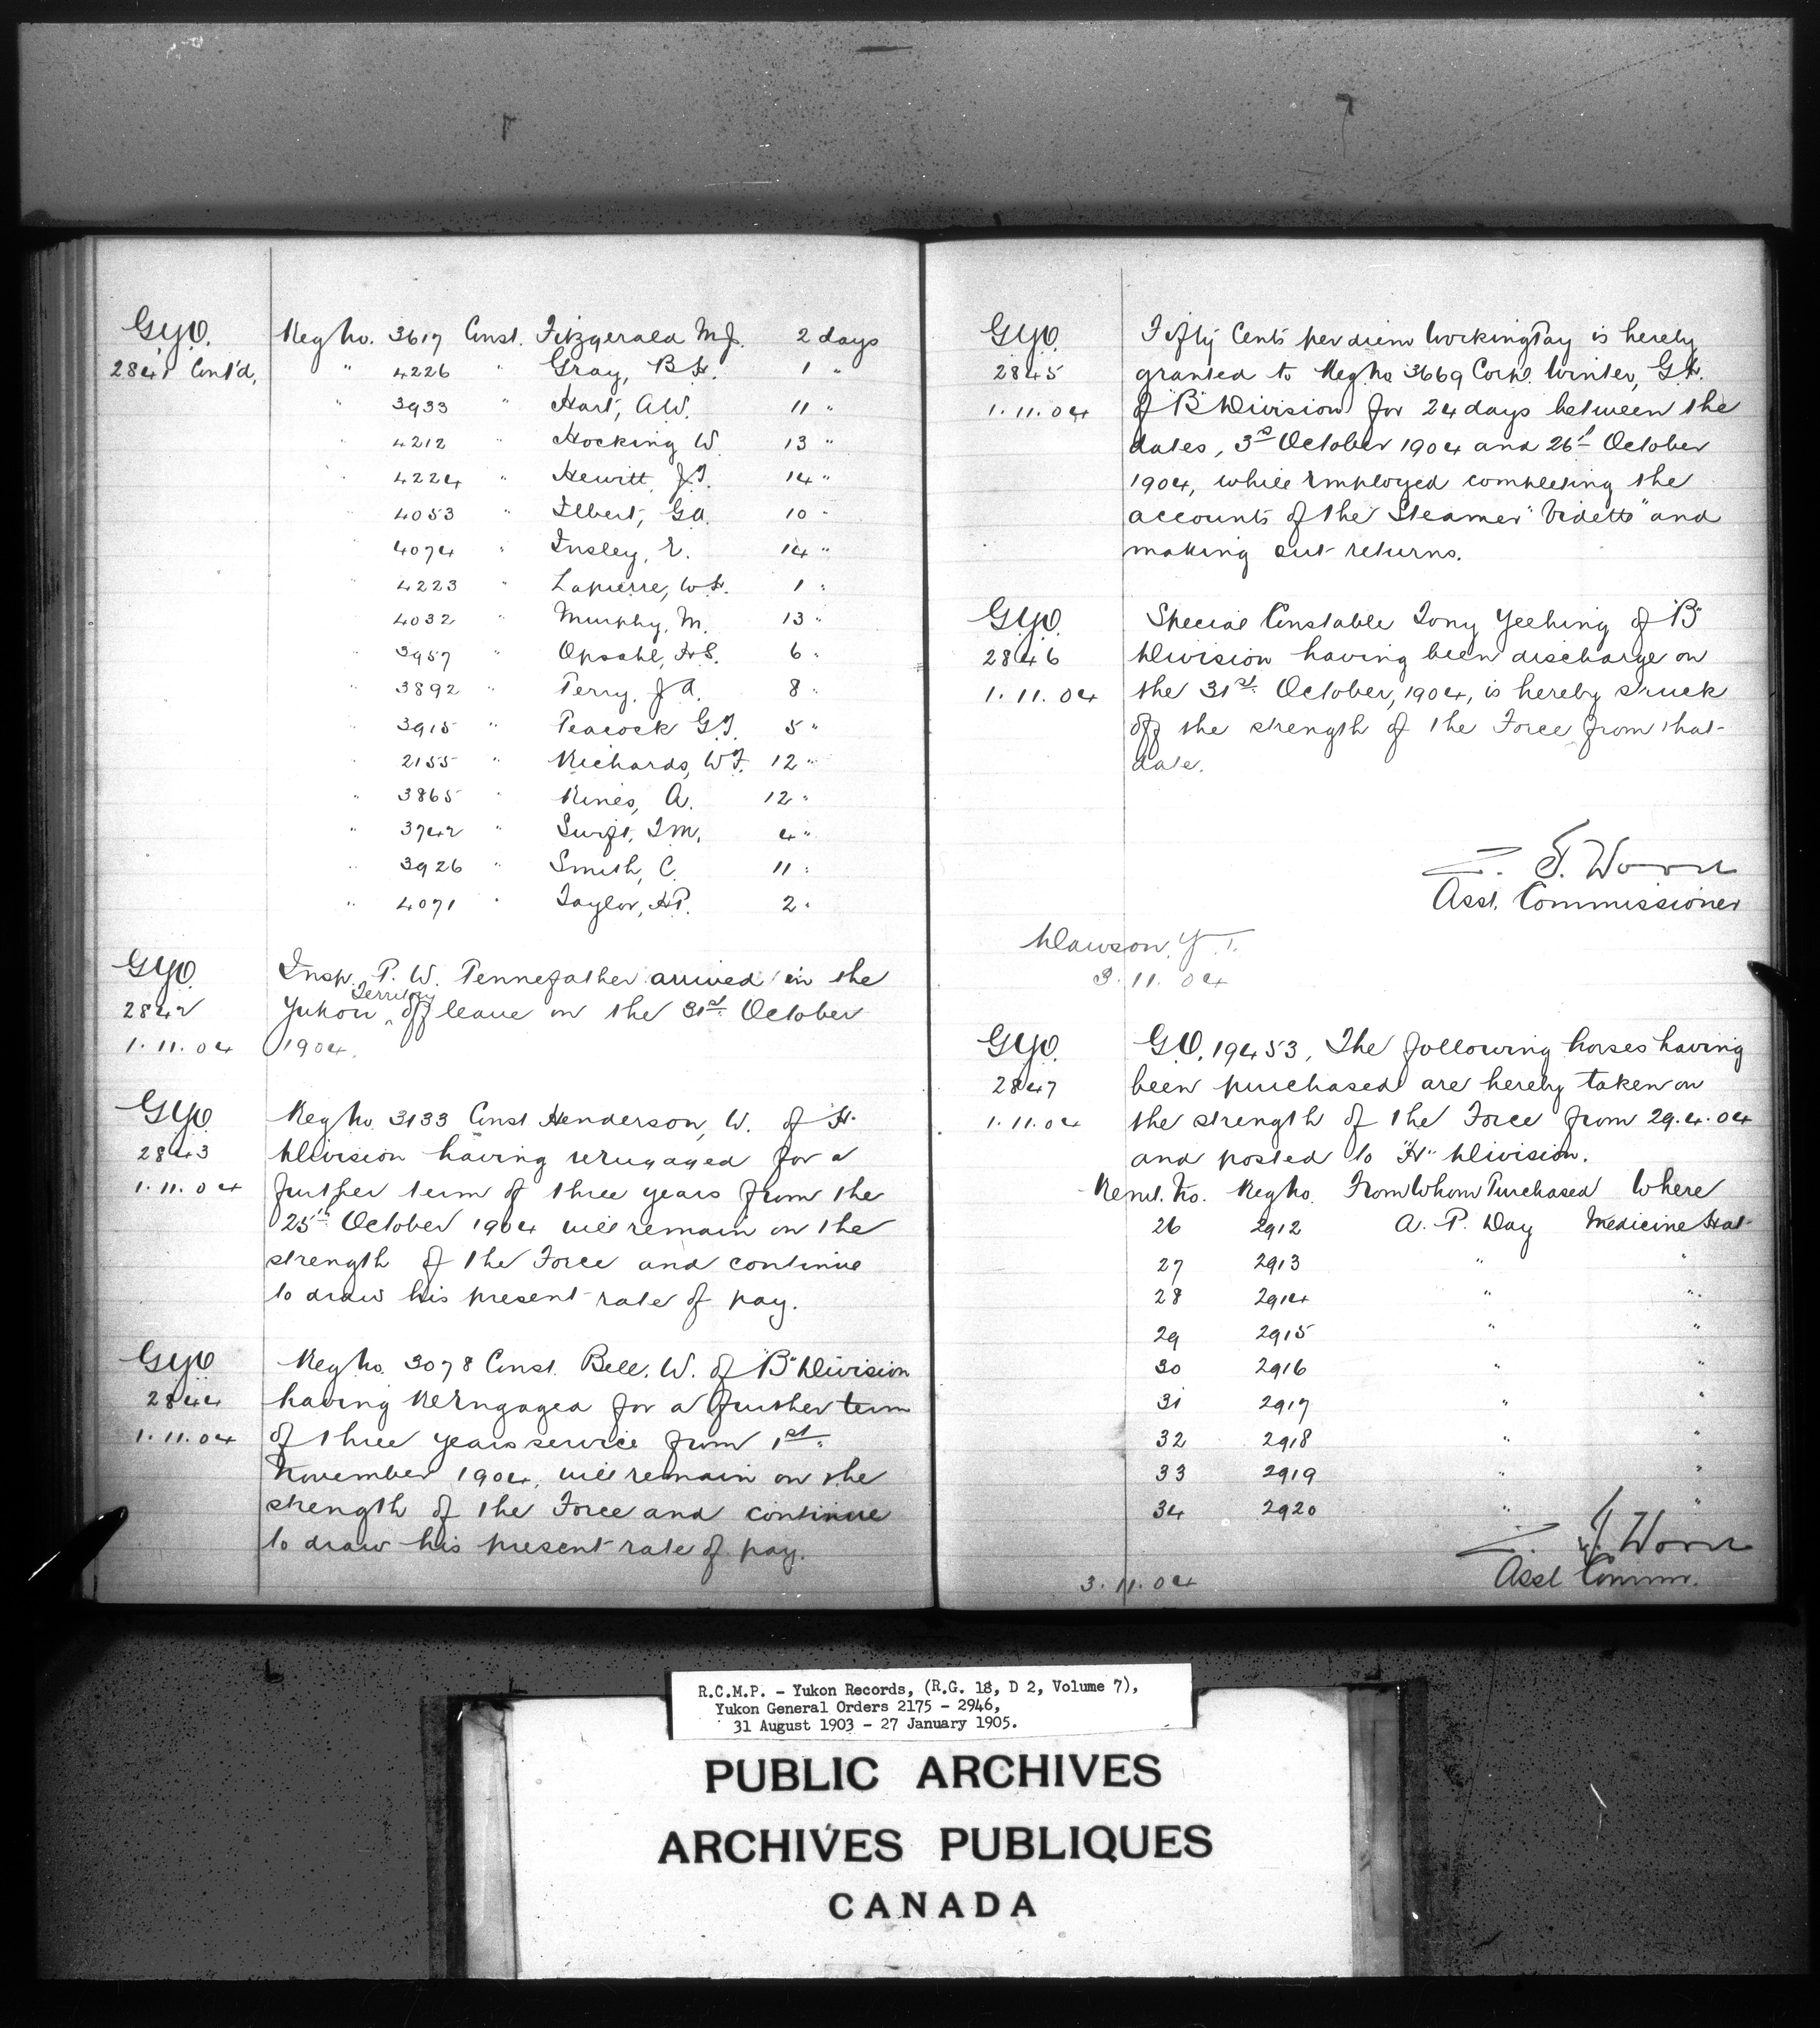 G.Y.O. Reg No. 3617 Const. Fitzgerald M.J. 2 days
2841 Cont'd, " 4226 " Gray, B.H. 1 "
" 3933 " Hart, A.W. 11 "
" 4212 Hocking W. 13 "
" 4224 " Hewitt, J.T. 14 "
" 4053 " Ilbert, G.A. 10 "
" 4074 " Insley, E. 14 "
" 4223 " Lapierre, W.H. 1 "
" 4032 " Murphy, M. 13 "
" 3957 " Opsahl, H.S. 6 "
" 3892 " Perry, J.A. 8 "
" 3915 " Peacock G.T. 5 "
" 2155 " Richards, W.F. 12 "
" 3865 " Rines, A. 12 "
" 3742 " Swift, T.M. 4 "
" 3926 " Smith, C. 11 "
" 4071 " Taylor, H.P. 2 "
G.Y.O. Insp. P. W. Pennefather arrived in the
2842 Yukon Territory off leave on the 31st October
1.11.04 1904.
G.Y.O. Reg No. 3133 Const Henderson, W. of "H"
2843 Division having reengaged for a
1.11.04 further term of three years from the
25th October 1904 will remain on the
strength of the Force and continue
to draw his present rate of pay.
G.Y.O. Reg No. 3078 Const. Bell. W. of "B" Division
2844 having Reengaged for a further term
1.11.04 of three years service from 1st
November 1904, will remain on the
strength of the Force and continue
to draw his present rate of pay.
G.Y.O. Fifty Cents per diem Working Pay is hereby
2845 granted to Reg No 3669 Corpl. Winter, G.H.
1.11.04 of "B" Division for 24 days between the
dates, 3rd October 1904 and 26th October
1904, while Employed completing the
accounts of the Steamer "Vidette" and
making out returns.
G.Y.O. Special Constable Tony Yeehing of "B"
2846 Division having been discharge on
1.11.04 the 31st October, 1904, is hereby struck
off the strength of the Force from that
date.
Z. T. Wood
Asst. Commissioner
Dawson, Y.T.
3.11.04
G.Y.O. G.O. 19453, The following horses having
2847 been purchased are hereby taken on
1.11.04 the strength of the Force from 29.4.04
and posted to "H" Division.
Remt. No. Reg No. From Whom Purchased Where
26 2912 A. P. Day Medicine Hat
27 2913 " "
28 2914 " "
29 2915 " "
30 2916 " "
31 2917 " "
32 2918 " "
33 2919 " "
34 2920 " "
Z. T. Wood
3.11.04 Asst Comm.
R.C.M.P. - Yukon Records, (R.G. 18, D 2, Volume 7),
Yukon General Orders 2175 - 2946,
31 August 1903 - 27 January 1905.
PUBLIC ARCHIVES
ARCHIVES PUBLIQUES
CANADA